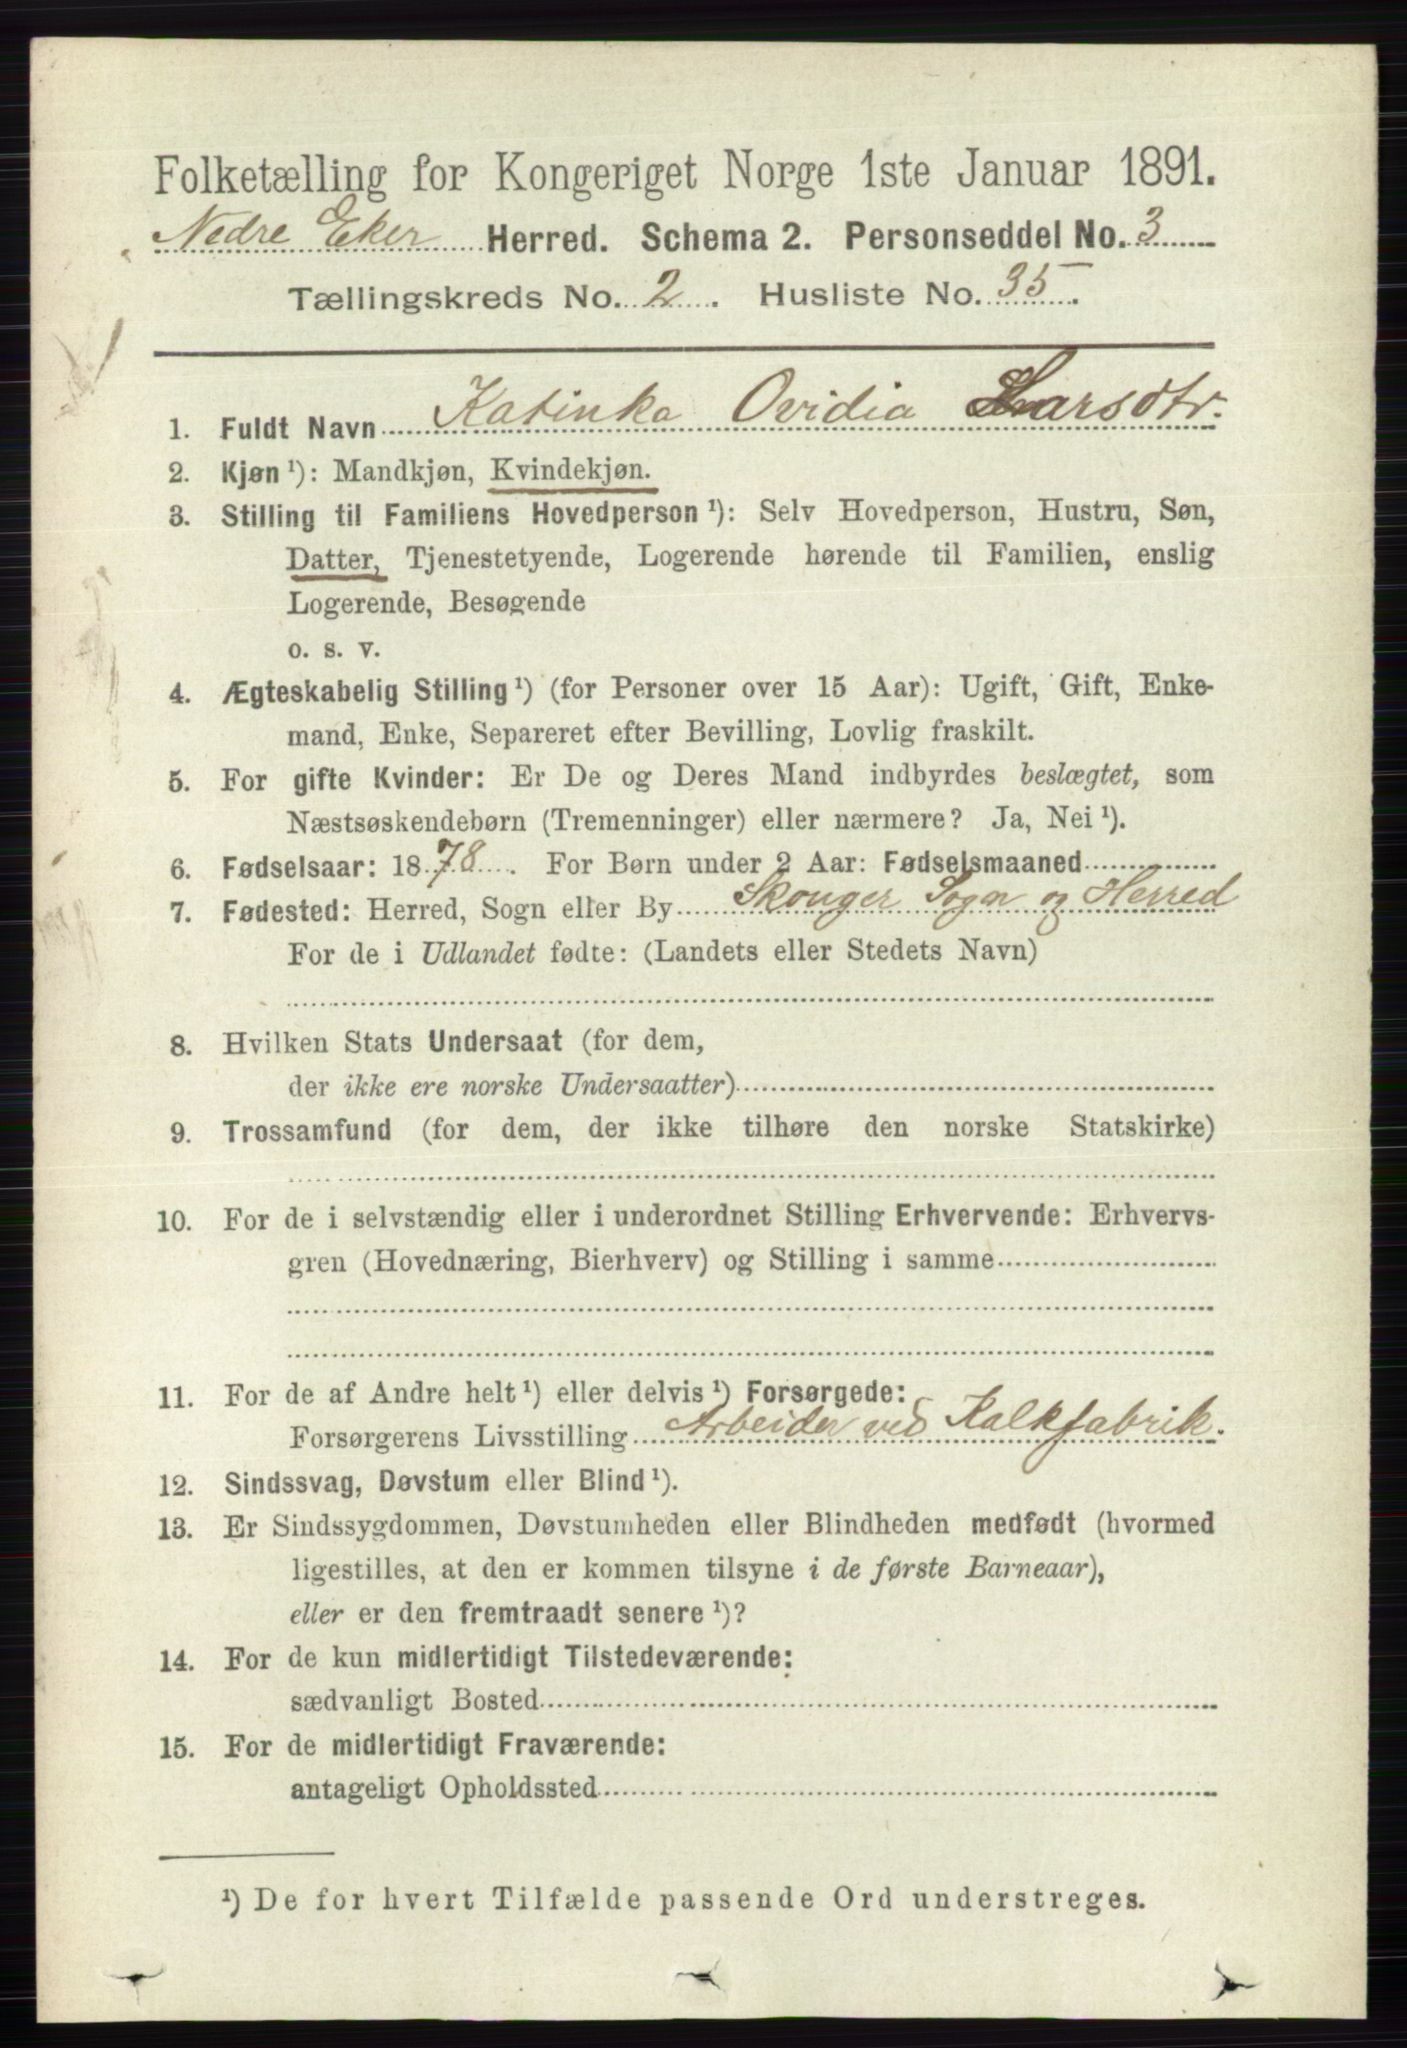 Folketælling for Kongeriget Norge 1ste Januar 1891.
Nedre Eker Herred. Schema 2. Personseddel No. 3
Tællingskreds No. 2. Husliste No. 35.
1. Fuldt Navn Katinka Ovidia Larsdtr.
2. Kjøn ¹): Mandkjøn, Kvindekjøn.
3. Stilling til Familiens Hovedperson ¹): Selv Hovedperson, Hustru, Søn,
Datter, Tjenestetyende, Logerende hørende til Familien, enslig
Logerende, Besøgende
o. s. v.
4. Ægteskabelig Stilling ¹) (for Personer over 15 Aar): Ugift, Gift, Enke-
mand, Enke, Separeret efter Bevilling, Lovlig fraskilt.
5. For gifte Kvinder: Er De og Deres Mand indbyrdes beslægtet, som
Næstsøskendebørn (Tremenninger) eller nærmere? Ja, Nei ¹).
6. Fødselsaar: 1878. For Børn under 2 Aar: Fødselsmaaned
7. Fødested: Herred, Sogn eller By Skouger Sogn og Herred
For de i Udlandet fødte: (Landets eller Stedets Navn)
8. Hvilken Stats Undersaat (for dem,
der ikke ere norske Undersaatter)
9. Trossamfund (for dem, der ikke tilhøre den norske Statskirke)
10. For de i selvstændig eller i underordnet Stilling Erhvervende: Erhvervs-
gren (Hovednæring, Bierhverv) og Stilling i samme
11. For de af Andre helt ¹) eller delvis ¹) Forsørgede:
Forsørgerens Livsstilling Arbeider ved Kalkfabrik.
12. Sindssvag, Døvstum eller Blind ¹).
13. Er Sindssygdommen, Døvstumheden eller Blindheden medfødt (hvormed
ligestilles, at den er kommen tilsyne i de første Barneaar),
eller er den fremtraadt senere ¹)?
14. For de kun midlertidigt Tilstedeværende:
sædvanligt Bosted
15. For de midlertidigt Fraværende:
antageligt Opholdssted
¹) De for hvert Tilfælde passende Ord understreges.